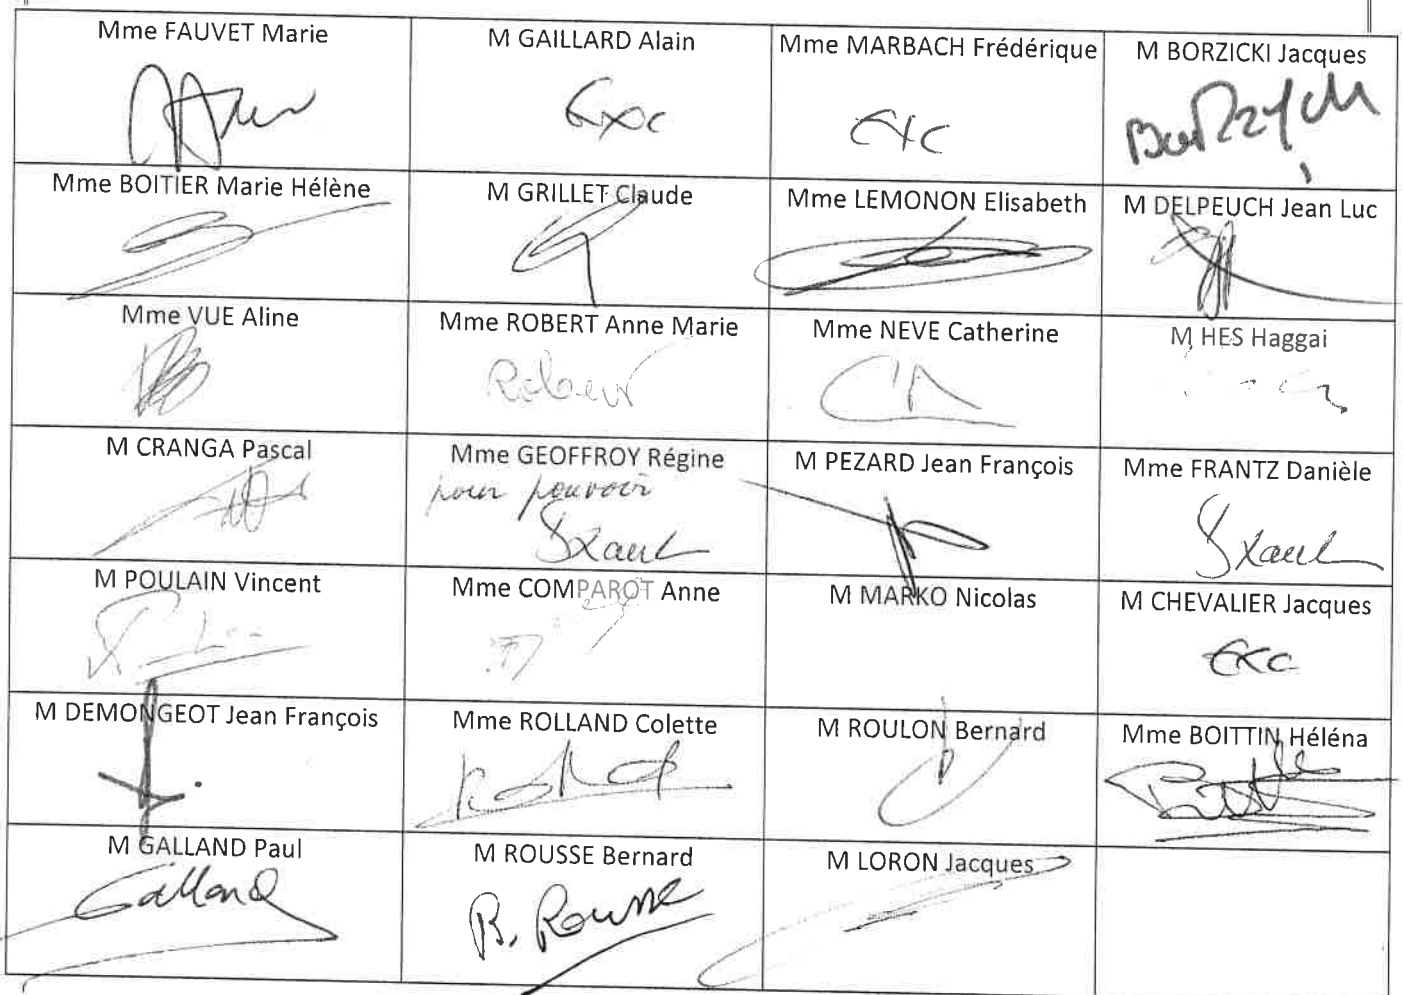 Mme FAUVET Marie
M GAILLARD Alain
Mme MARBACH Frédérique
M BORZICKI Jacques
Exc
Exc
Mme BOITIER Marie Hélène
M GRILLET Claude
Mme LEMONON Elisabeth
M DELPEUCH Jean Luc
Mme VUE Aline
Mme ROBERT Anne Marie
Mme NEVE Catherine
M HES Haggai
Robert
M CRANGA Pascal
Mme GEOFFROY Régine
M PEZARD Jean François
Mme FRANTZ Danièle
pour pouvoir
M POULAIN Vincent
Mme COMPAROT Anne
M MARKO Nicolas
M CHEVALIER Jacques
Exc
M DEMONGEOT Jean François
Mme ROLLAND Colette
M ROULON Bernard
Mme BOITTIN Héléna
M GALLAND Paul
M ROUSSE Bernard
M LORON Jacques
Galland
B. Rousse